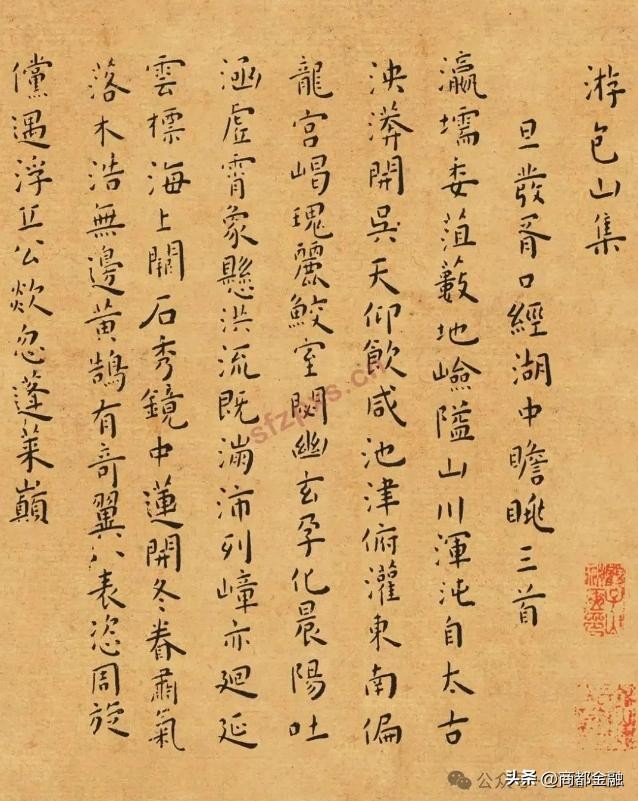 游包山集
旦發胥口經湖中瞻眺三首
瀛壖委菹藪地嶮隘山川渾沌自太古
泱漭開吳天仰飲咸池津俯灌東南偏
龍宮嵑瑰麗鮫室閟幽玄孕化晨陽吐
涵虛霄象懸洪流既滿沛列嶂亦迴延
雲標海上闕石秀鏡中蓮開冬眷肅氣
落木浩無邊黃鵠有奇翼八表恣周旋
儻遇浮丘公欻忽蓬萊巔
sfzpws.cn
公众
头条 @商都金融